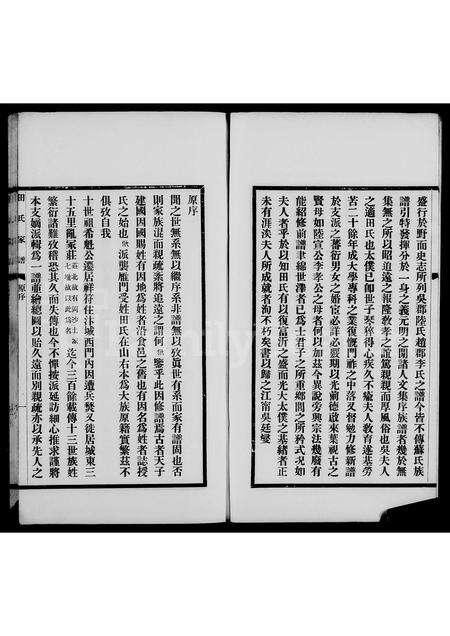 盛行於野而史志所列吳郡陸氏趙郡李氏之譜今皆不傳蘇氏族
譜引特發揮分於一身之義元明之間諸人文集序族譜者幾於無
集無之所以昭追遠之報隆敎孝之誼篤親親而厚風俗也吳夫人
之適田氏也太僕已卹世子琴猝得心疾久不瘉夫人敎育遂基勞
苦二十餘年成大學專科之業復慨門祚之中落又督勉力修新譜
於支派之蕃衍男女之婚宦必詳必嚴期以光前德啟來葉視古之
賢母如陸宣公李孝公之母者何以加茲今異說旁興宗法幾廢有
能紹修前譜聿綿世澤者已爲士君子之所重鄉閭之所矜式況如
夫人者乎於以知田氏有以復富沂之盛而光大太僕之基緒者正
未有涯涘夫人所成就者洵不朽矣書以歸之江甯吳廷燮
原序
聞之世無系無以繼序系非譜無以攷眞世有系而家有譜固也否
則家族混而親疏紊將追遠之謂何 鑒乎此因修譜爲古者天子
建國因國賜姓有因地爲姓者沿食邑之舊也有因名爲姓者誌授
氏之始也 派襲雁門受姓田氏在山右本爲大族原籍實繁茲不
俱攷自我
十世祖希魁公遷居祥符住汴城西門內因遭兵燹又徙居城東三
十五里亂家莊 迄今三百餘載傳十三世族姓
繁衍諸難攷稽恐其久而失傳也今不憚按派延訪細心推求謹將
本支嫡派輯爲一譜並繪總圖以貽久遠而別親疏亦以承先人之
田氏家譜 原序